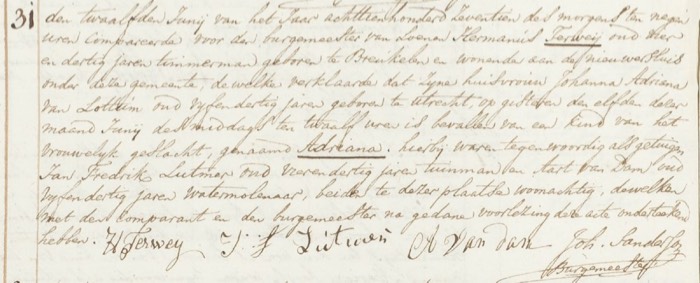 31
den twaalfden Junij van het Jaar achttienhonderd Zeventien des morgens ten negen
uren compareerde voor den burgemeester van Loenen Hermanus Terweij oud vier
en dertig jaren timmerman geboren te Breukelen en wonende aan de nieuwersluis
onder deze gemeente, dewelke verklaarde dat Zyne huisvrouw Johanna Adriana
van Lottum oud vyfendertig jaren geboren te Utrecht, op gisteren den elfden dezer
maand Junij des middags ten twaalf uren is bevallen van een kind van het
vrouwelyk geslacht, genaamd Adriana. hierbij waren tegenwoordig als getuigen
Jan Fredrik Lutmer oud vierendertig jaren tuinman en Aart van Dam oud
vyfendertig jaren watermolenaar, beiden te dezer plaatse woonachtig, dewelken
met den comparant en den burgemeester na gedane voorlezing deze acte onderteekend
hebben. H Terwey J: f Lutmer A van dam Joh. Sanderson
Burgemeester